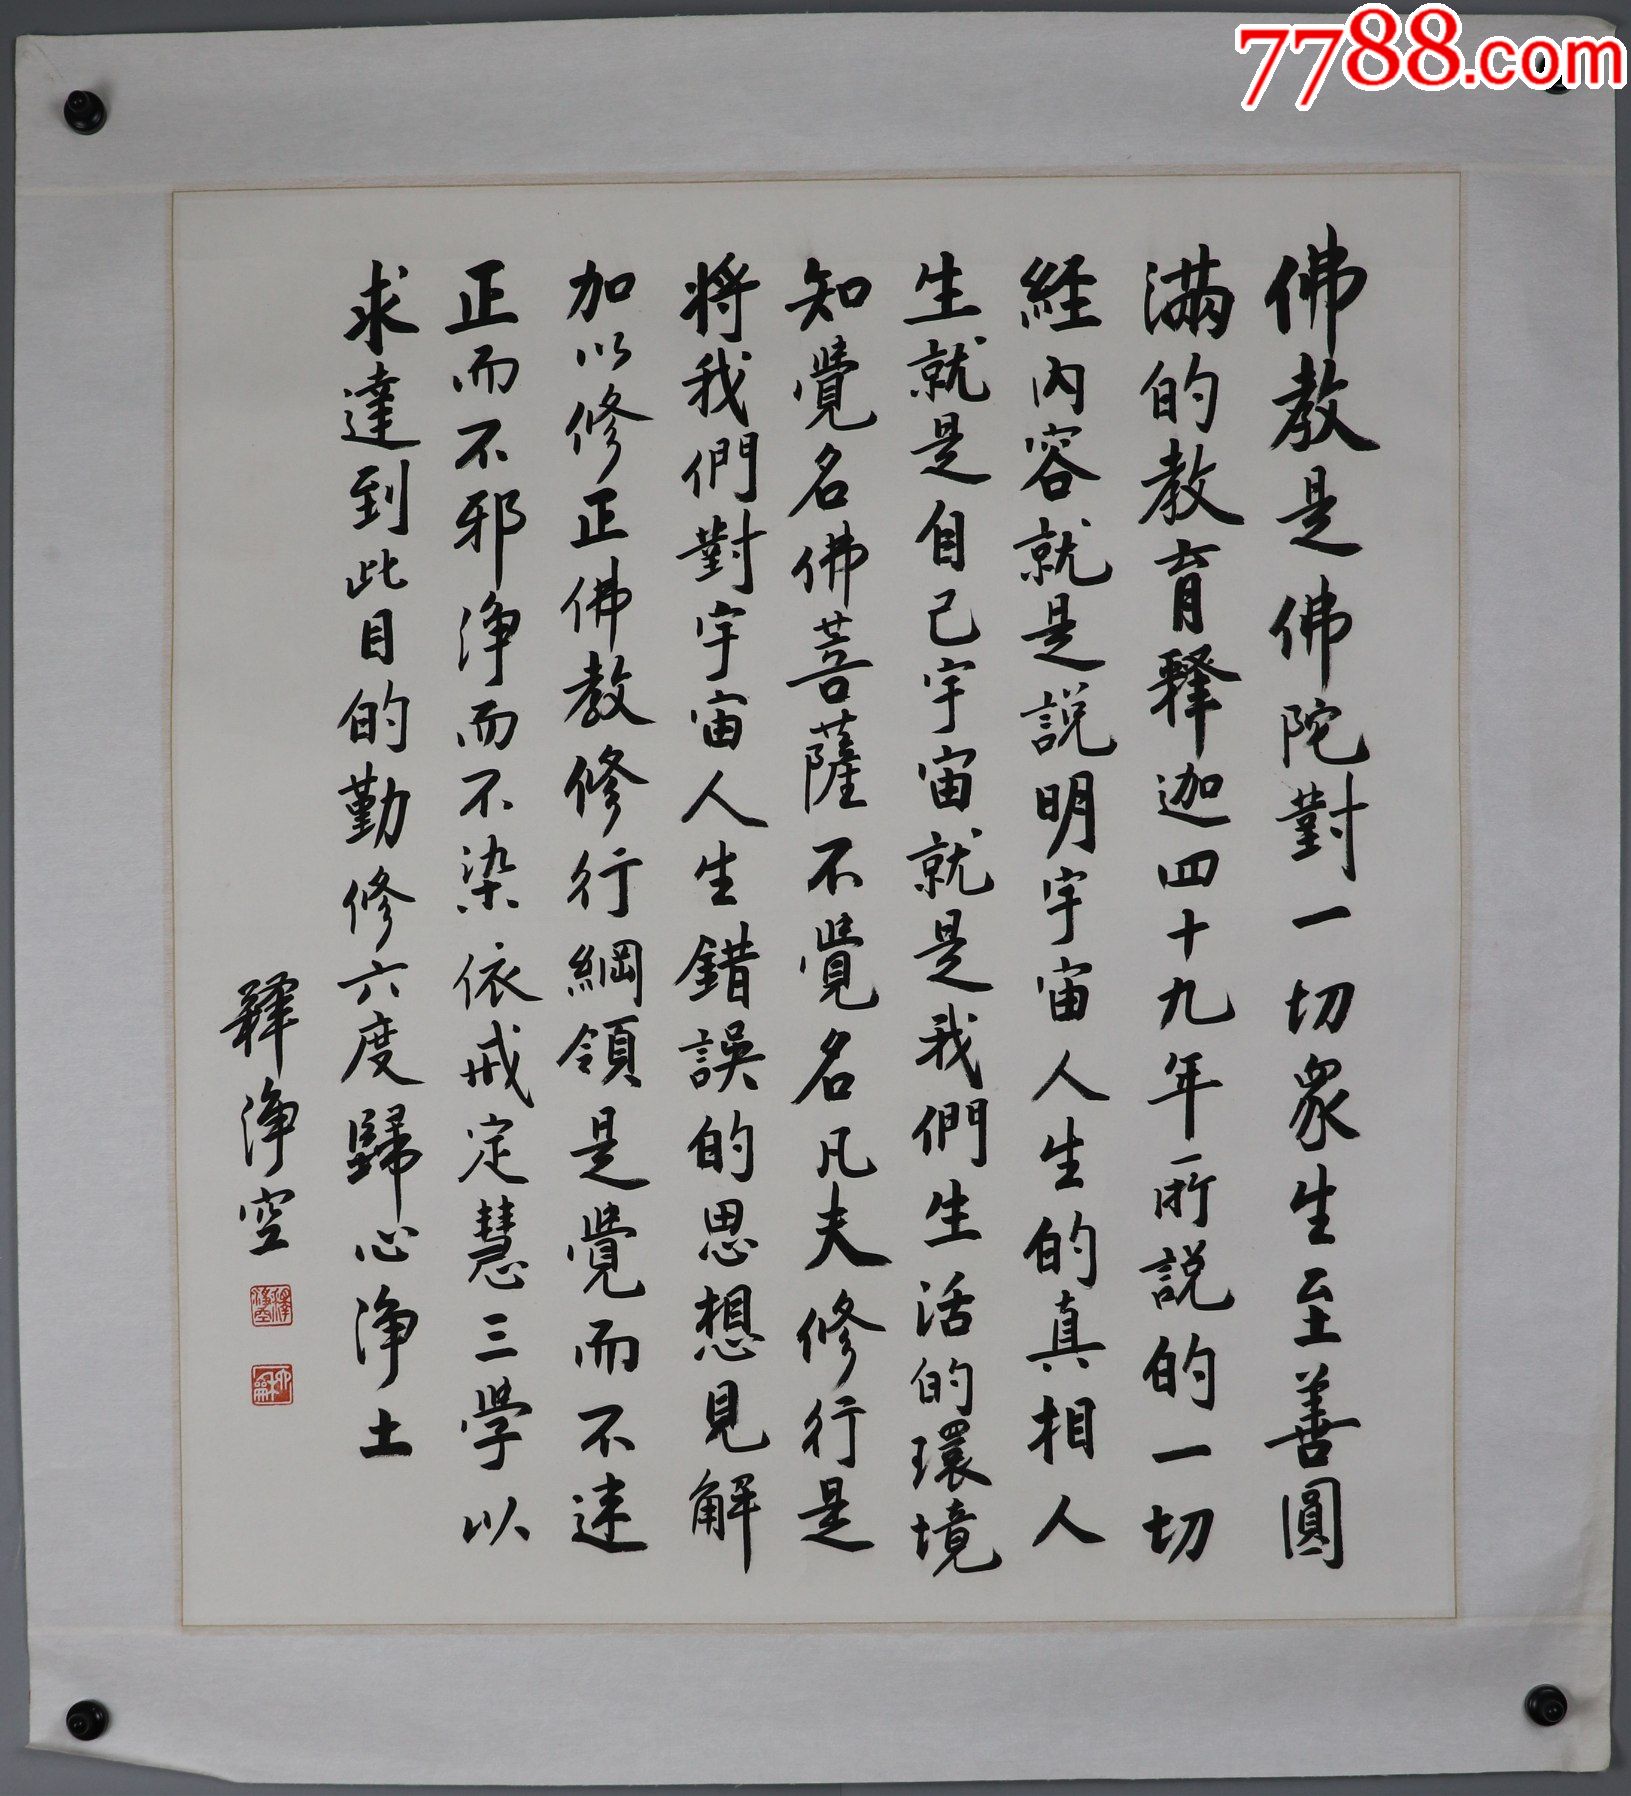 7788.com
佛教是佛陀對一切衆生至善圓
滿的教育釋迦四十九年所説的一切
經内容就是説明宇宙人生的真相人
生就是自己宇宙就是我們生活的環境
知覺名佛菩薩不覺名凡夫修行是
將我們對宇宙人生錯誤的思想見解
加以修正佛教修行綱領是覺而不迷
正而不邪淨而不染依戒定慧三學以
求達到此目的勤修六度歸心淨土
釋淨空